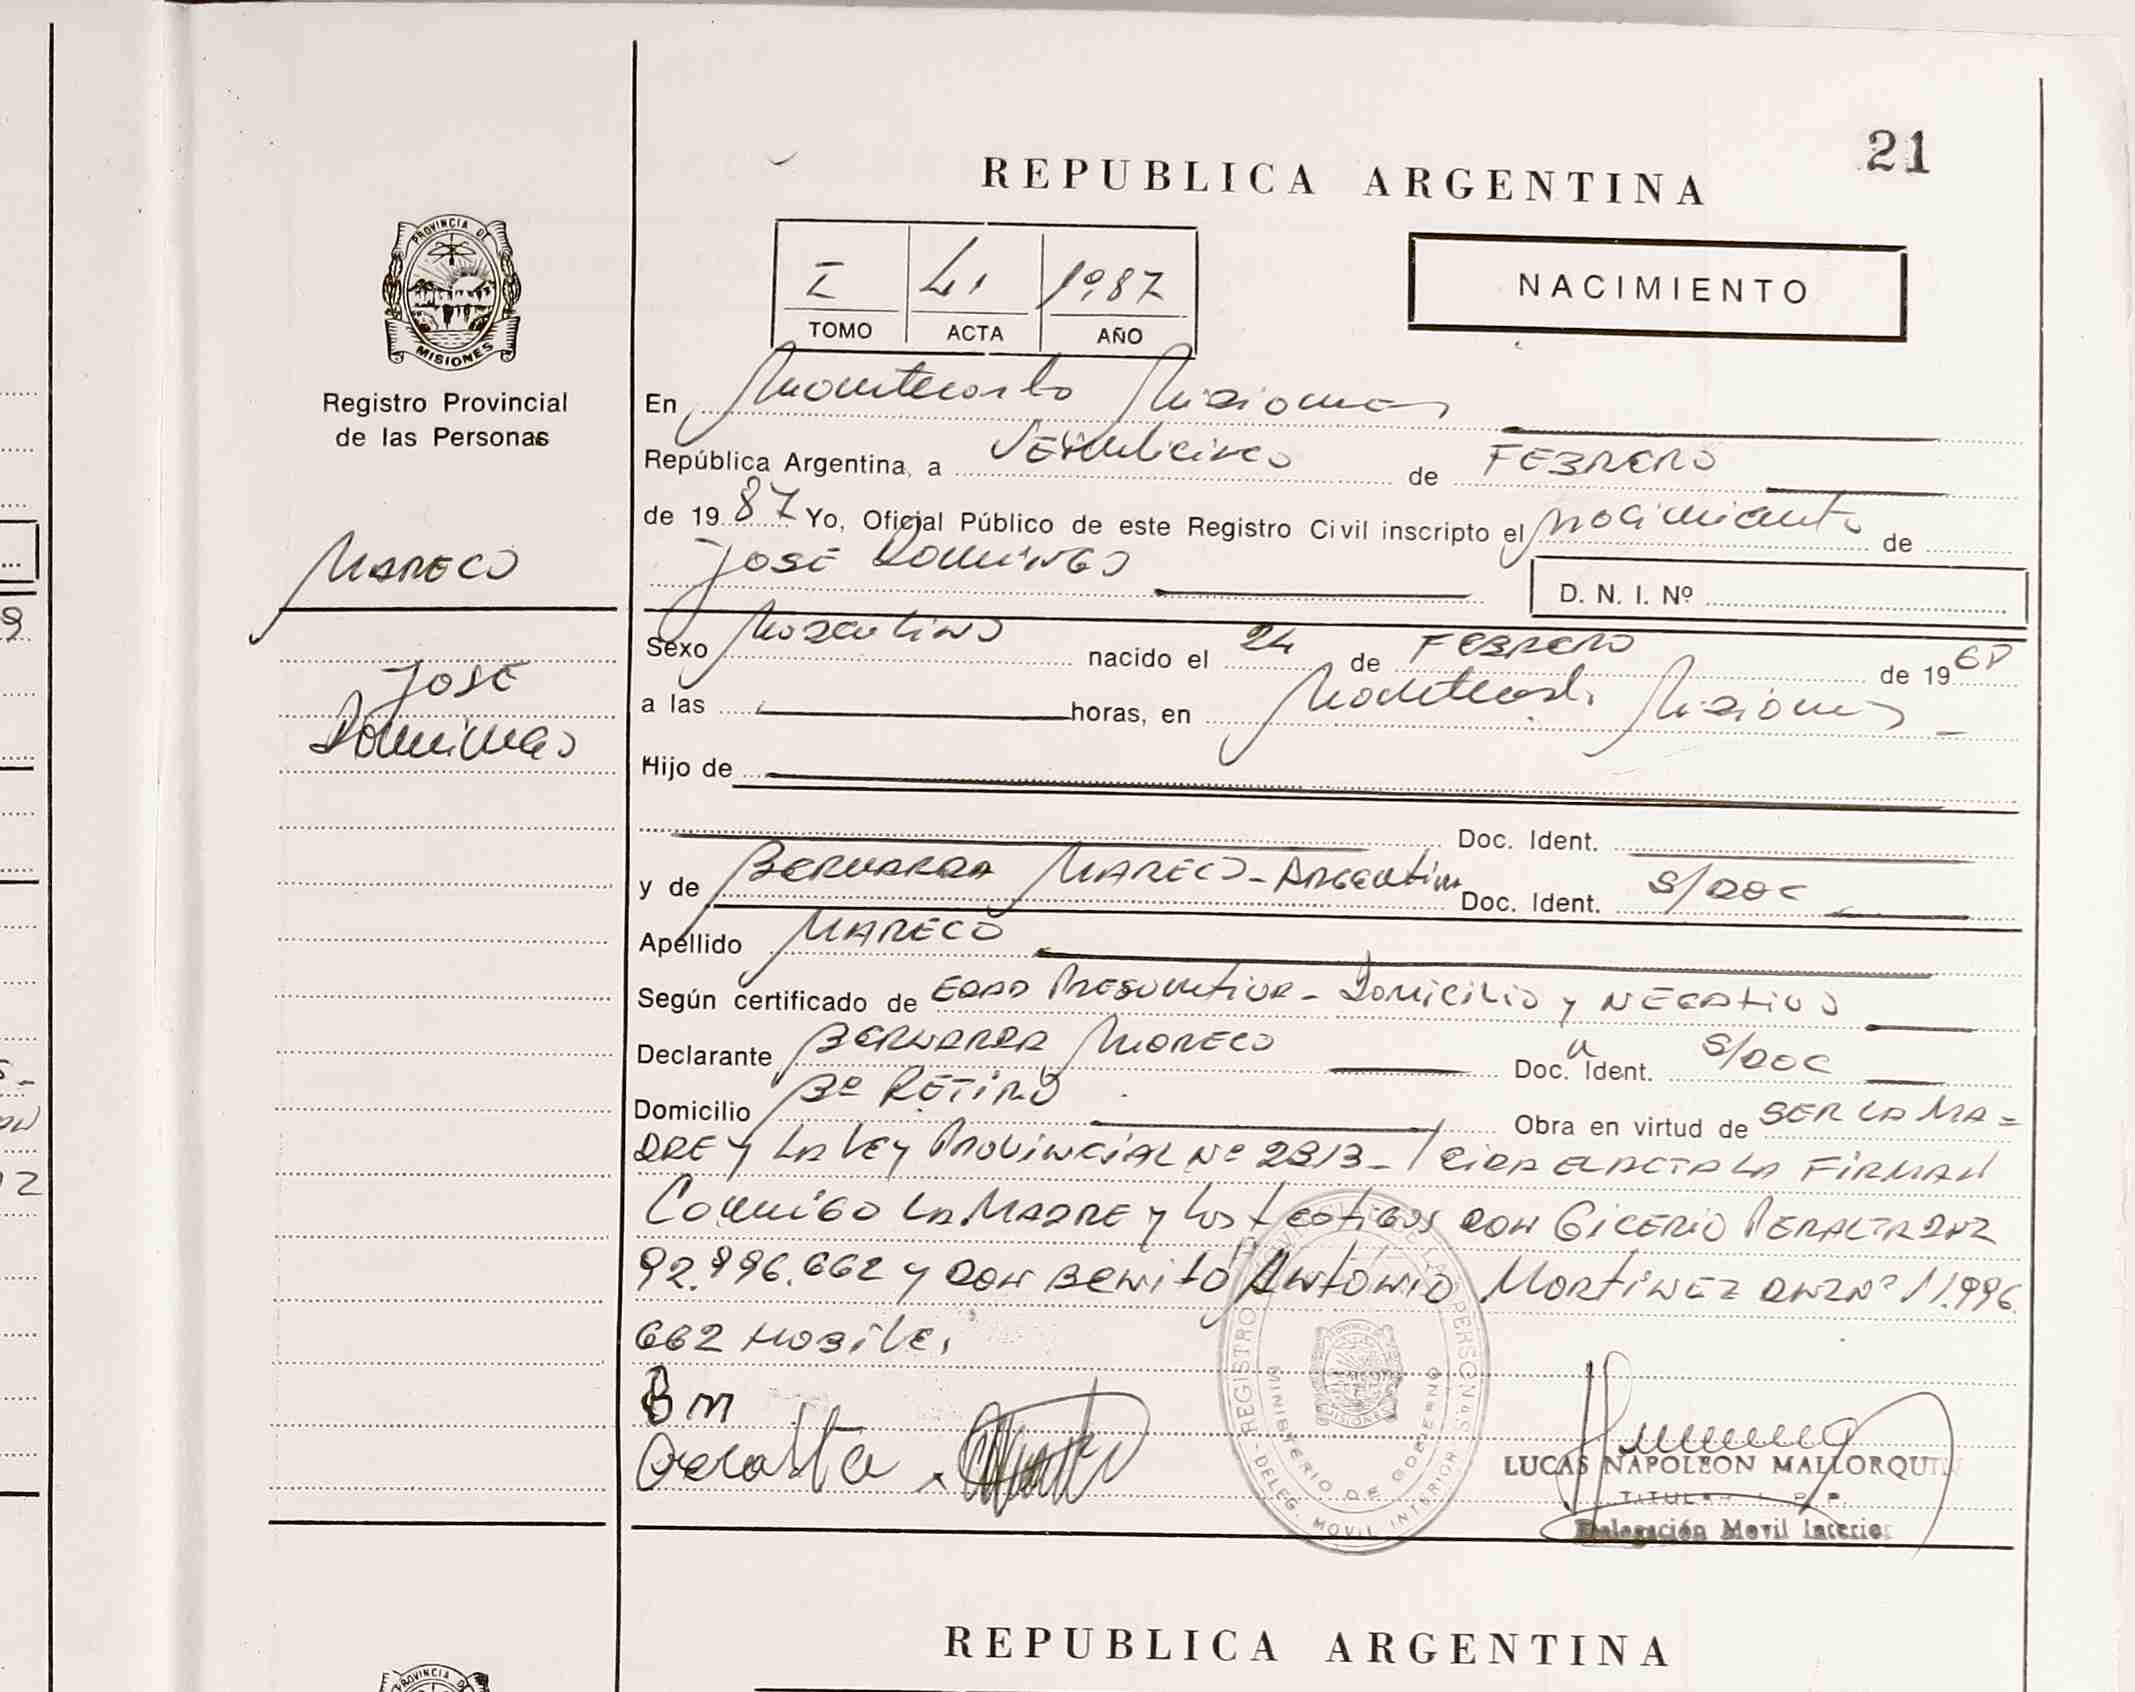 21
REPUBLICA ARGENTINA
PROVINCIA DE MISIONES
Registro Provincial
de las Personas
I 41 1987
TOMO ACTA AÑO
NACIMIENTO
En Montecarlo Misiones
República Argentina, a Veinticinco de FEBRERO
de 1987 Yo, Oficial Público de este Registro Civil inscripto el nacimiento de
JOSÉ DOMINGO
D. N. I. Nº
MARECO
JOSE
Domingo
Sexo Masculino nacido el 24 de FEBRERO de 196
a las horas, en Montecarlo Misiones
Hijo de
Doc. Ident.
y de BERNARDA MARECO - Argentina Doc. Ident. S/DOC
Apellido MARECO
Según certificado de EDAD PRESUNTIVA - Domicilio y NEGATIVO
Declarante BERNARDA MARECO Doc. Ident. S/DOC
Domicilio Bº RETIRO Obra en virtud de SER LA MA=
DRE Y LA LEY PROVINCIAL Nº 2313 - EL ACTA LA FIRMAN
Conmigo LA MADRE y los testigos DON GICERIO PERALTA DNI
92.996.662 y DON BENITO ANTONIO MARTINEZ DNI Nº 11.996
662
BM
Peralta
REGISTRO PROVINCIAL DE LAS PERSONAS
MINISTERIO DE GOBIERNO
DELEG. MOVIL INTERIOR
MISIONES
LUCAS NAPOLEON MALLORQUIN
TITULAR
Delegación Movil Interior
REPUBLICA ARGENTINA
PROVINCIA